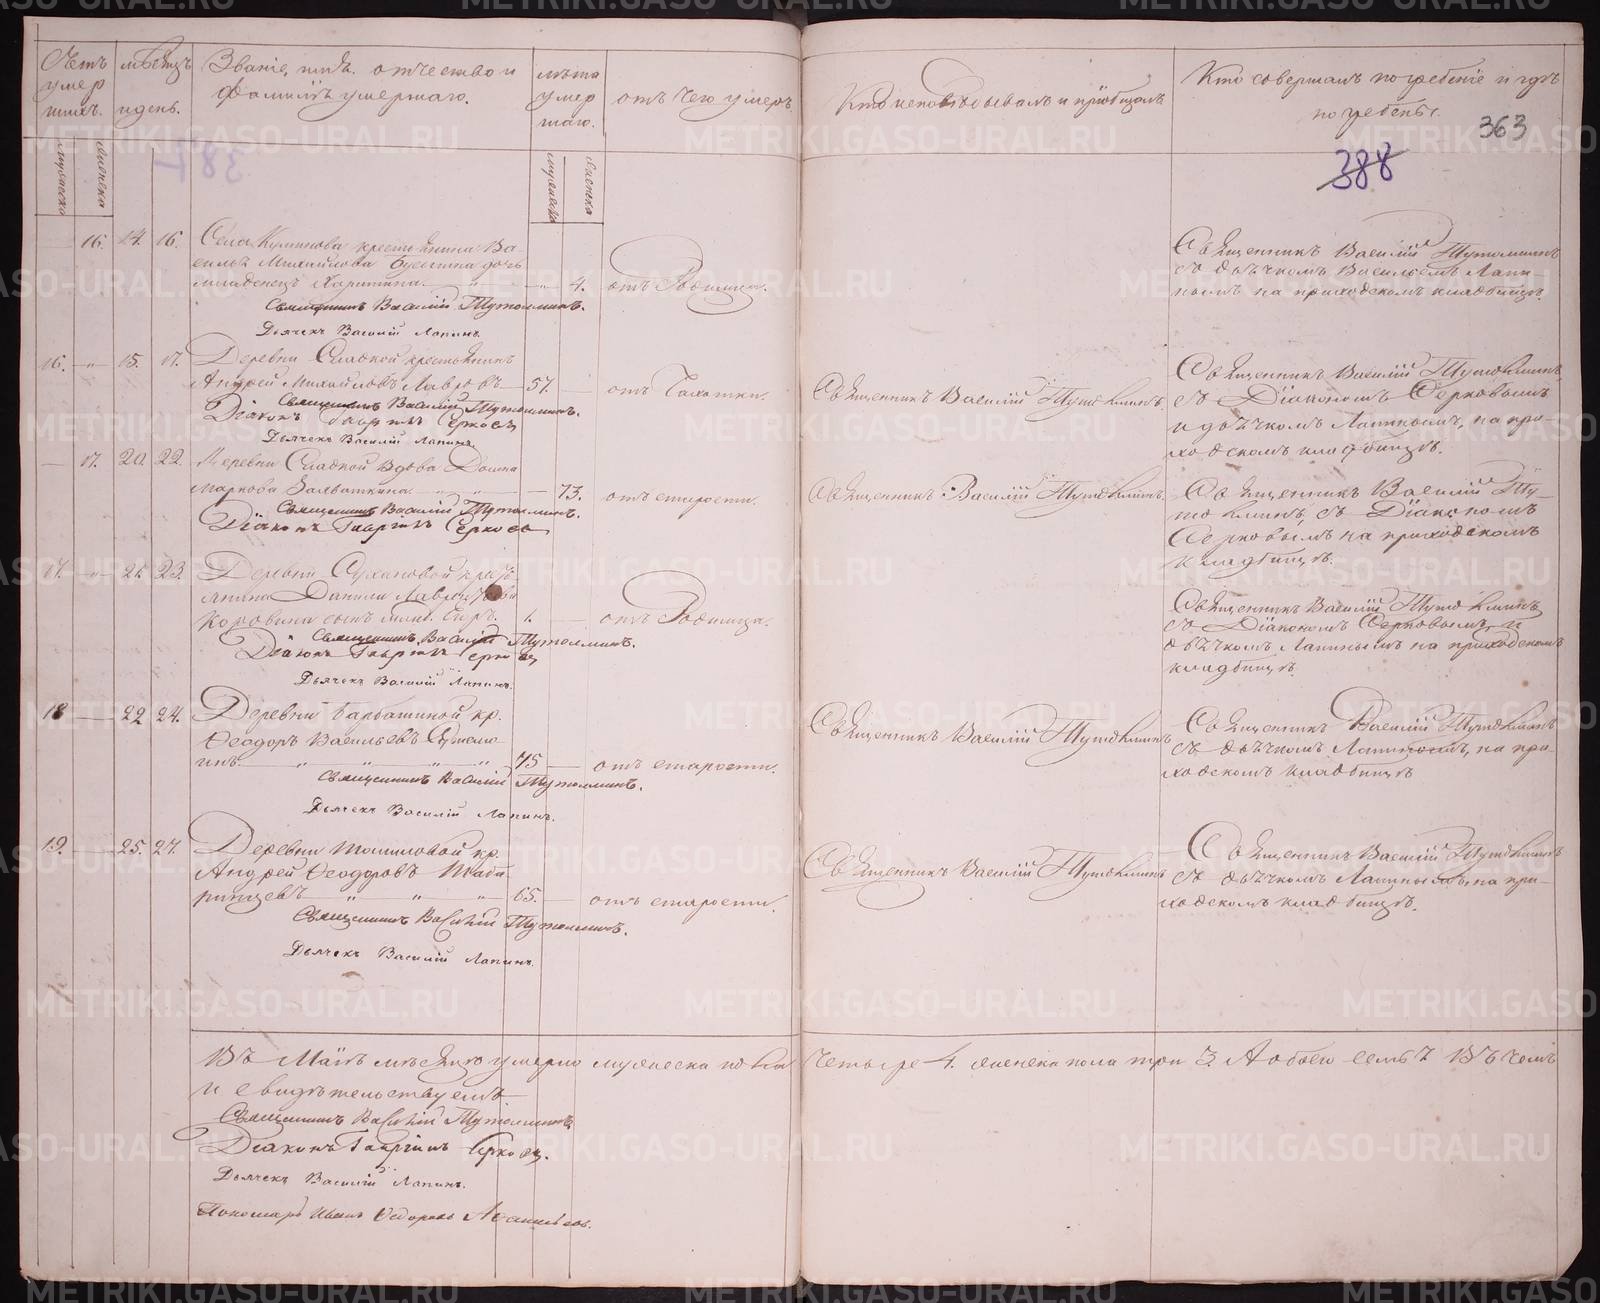 Счетъ умер шихъ.
мѣсяцъ и день.
Званіе, имя, отчество и
фамилія умершаго.
лѣта умер шаго.
отъ чего умеръ
Кто исповѣдывалъ и пріобщалъ
Кто совершалъ погребеніе и гдѣ
погребены.
363
388
мужеска
женска
мужеска
женска
16. 14. 16.
Села крестьянина Ва-
силья Михайлова дочь
младенецъ 4. отъ Родимца.
Священникъ Василій Тутолминъ.
Дьячекъ Василій Лапинъ.
Священникъ Василій Тутолминъ
съ дьячкомъ Васильемъ Лапи-
нымъ на приходскомъ кладбищѣ.
16. 15. 17.
Деревни Сладкой крестьянинъ
Андрей Михайловъ Лавровъ 57. отъ Чахотки.
Священникъ Василій Тутолминъ.
Діаконъ Георгій Серковъ
Дьячекъ Василій Лапинъ.
Священникъ Василій Тутолминъ.
Священникъ Василій Тутолминъ
съ Діакономъ Серковымъ
и дьячкомъ Лапинымъ, на при-
ходскомъ кладбищѣ.
17. 20 22.
Деревни Сладкой вдова
Маркова 73. отъ старости.
Священникъ Василій Тутолминъ.
Діаконъ Георгій Серковъ
Священникъ Василій Тутолминъ.
Священникъ Василій Ту-
толминъ, съ Діакономъ
Серковымъ на приходскомъ
кладбищѣ.
17. 21. 23.
Деревни Сухановой кресть-
янина Данила Лаврентьева
Коровина сынъ млад. 1. отъ Родимца.
Священникъ Василій Тутолминъ.
Діаконъ Георгій Серковъ
Дьячекъ Василій Лапинъ.
Священникъ Василій Тутолминъ
съ Діакономъ Серковымъ, и
дьячкомъ Лапинымъ на приходскомъ
кладбищѣ.
18 22 24.
Деревни Барбашиной кр.
Ѳеодоръ Васильевъ
75 отъ старости.
Священникъ Василій Тутолминъ.
Дьячекъ Василій Лапинъ.
Священникъ Василій Тутолминъ
Священникъ Василій Тутолминъ
съ дьячкомъ Лапинымъ, на при-
ходскомъ кладбищѣ
19. 25. 27.
Деревни Томиловой кр.
Андрей Ѳеодоровъ Таба-
ринцевъ 65. отъ старости.
Священникъ Василій Тутолминъ.
Дьячекъ Василій Лапинъ.
Священникъ Василій Тутолминъ
Священникъ Василій Тутолминъ
съ дьячкомъ Лапинымъ, на при-
ходскомъ кладбищѣ.
Въ Маѣ мѣсяцѣ умерло мужеска пола Четыре 4. женска пола три 3. А обоего семь 7 Въ чемъ
и свидѣтельствуемъ
Священникъ Василій Тутолминъ
Діаконъ Георгій Серковъ.
Дьячекъ Василій Лапинъ.
Пономарь Иванъ Ѳедоровъ
METRIKI.GASO-URAL.RU